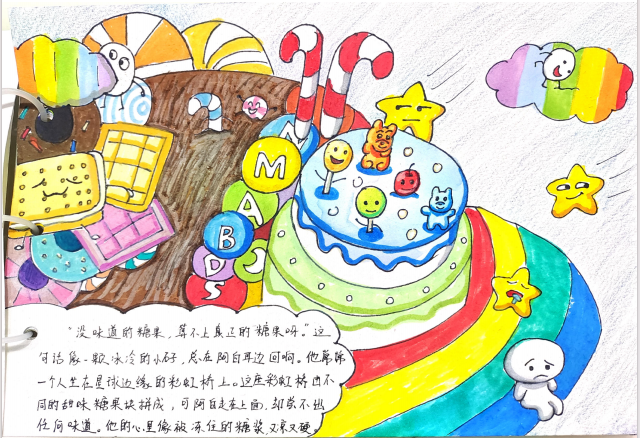 A
M
A
B
D
S
"没味道的糖果,算不上真正的糖果呀。"这
句话像一颗冰冷的小石子,总在阿白耳边回响。他常常
一个人坐在星球边缘的彩虹桥上。这座彩虹桥由不
同的甜味糖果块拼成,可阿白走在上面,却尝不出
任何味道。他的心里像被冻住的糖浆,又凉又硬。